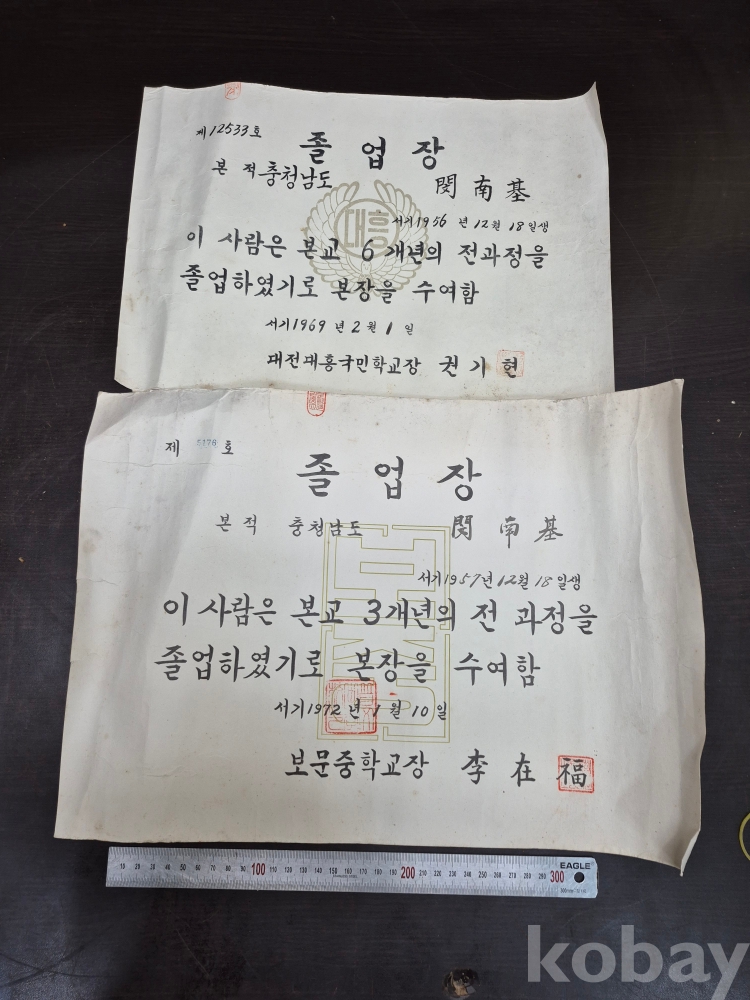 제12533호
졸업장
본적 충청남도
閔南基
대흥
서기1956년12월18일생
이 사람은 본교 6개년의 전과정을
졸업하였기로 본장을 수여함
서기1969년2월1일
대전대흥국민학교장 권기현
제 5178 호
졸업장
본적 충청남도 閔南基
서기1957년12월18일생
이 사람은 본교 3개년의 전 과정을
졸업하였기로 본장을 수여함
서기1972년1월10일
보문중학교장 李在福
10 20 30 40 50 60 70 80 90 100 110 120 130 140 150 160 170 180 190 200 210 220 230 240 250 260 270 280 290 300
EAGLE
kobay